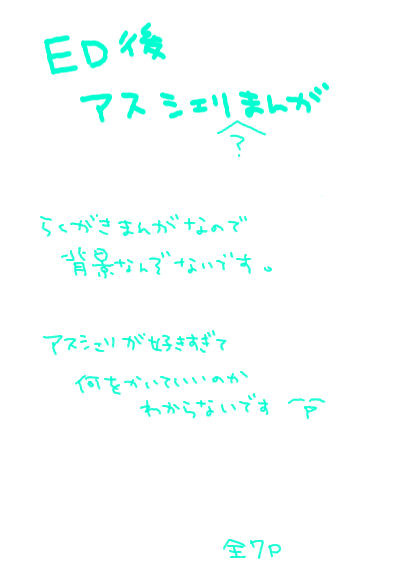 ED後
アスシェリまんが
?
らくがきまんがなので
背景なんぞないです。
アスシェリが好きすぎて
何をかいていいのか
わからないです
全7P